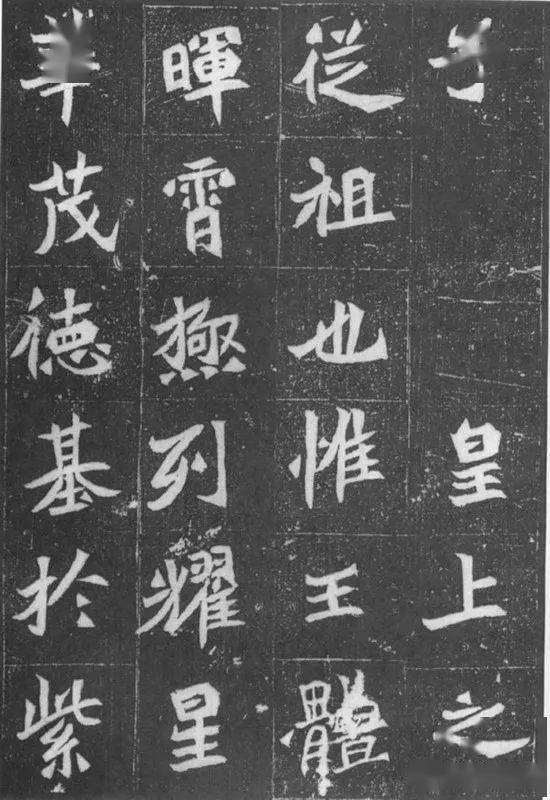 皇上之
從祖也惟王體
暉霄極列耀星
華茂德基於紫